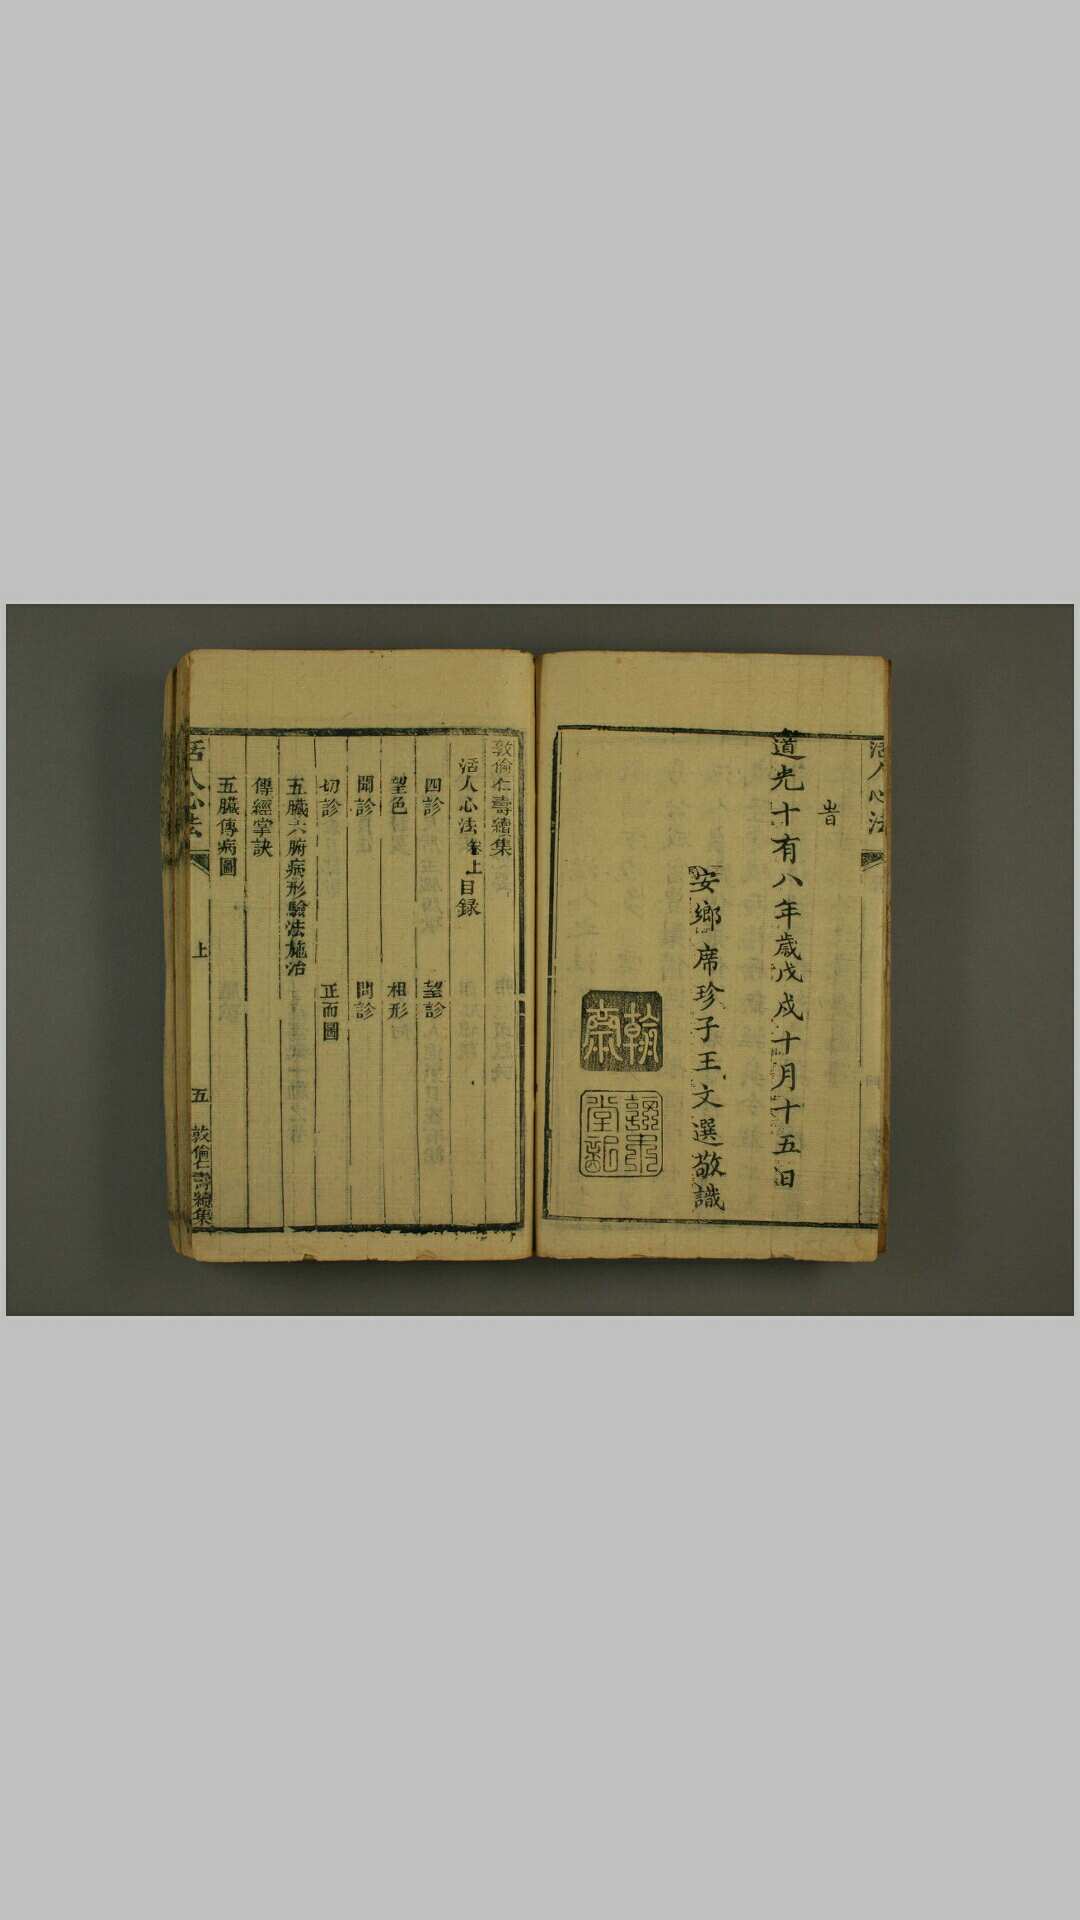 活人心法
旹
道光十有八年歲戊戌十月十五日
安鄉席珍子王文選敬識
敦倫仁壽續集
活人心法卷上目録
四診 望診
望色 相形
聞診 問診
切診 正面圖
五臟六腑病形驗法施治
傳經掌訣
五臟傳病圖
活人心法 上 五 敦倫仁壽續集